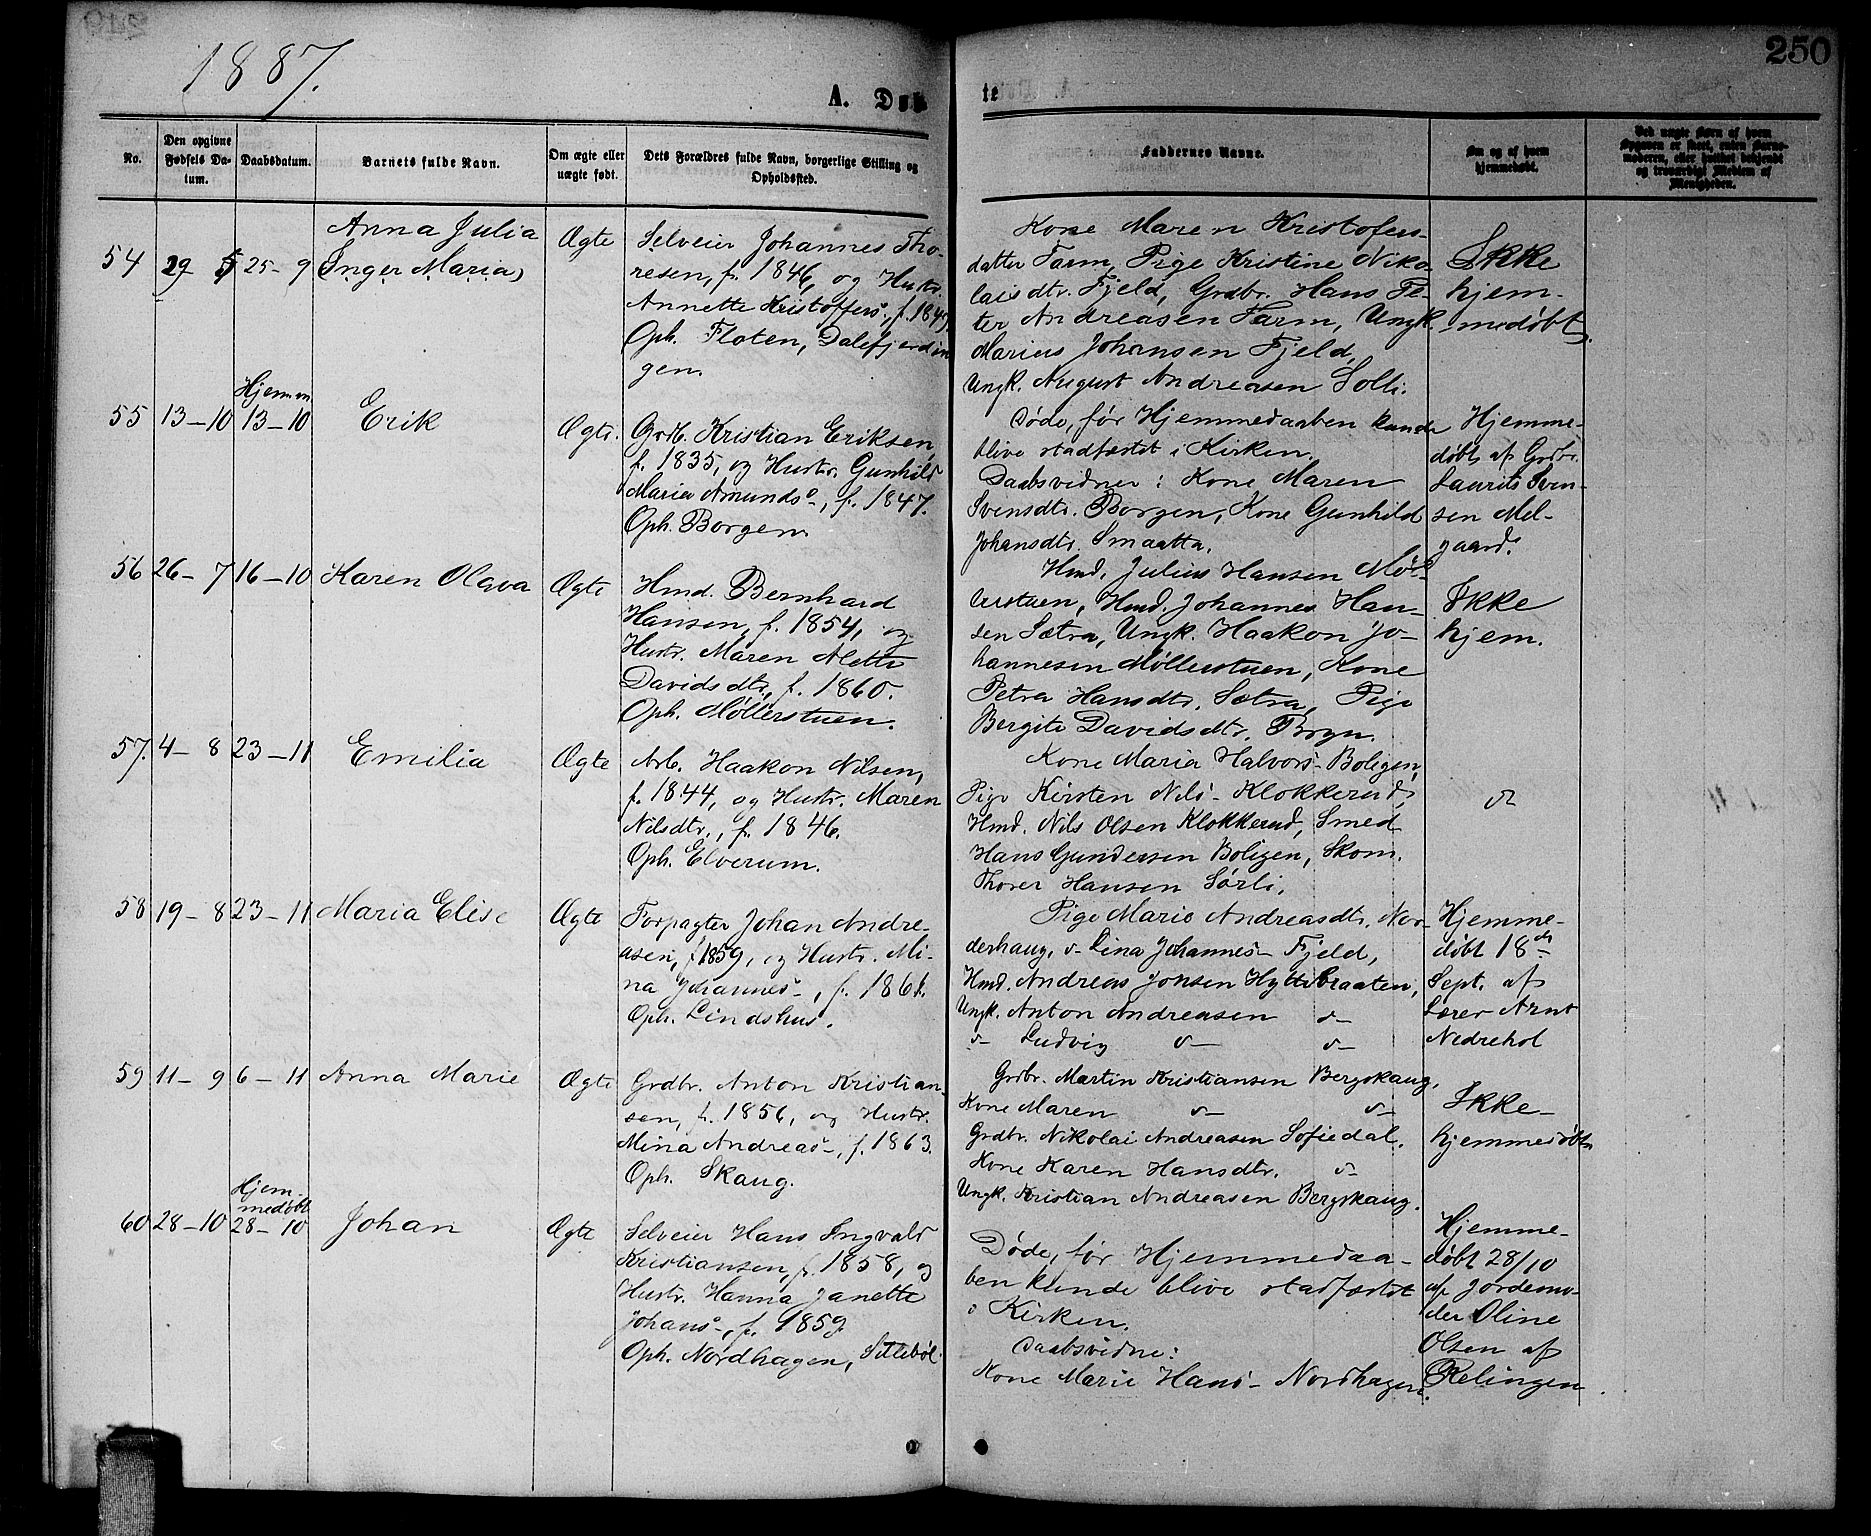 1887.
250
A. Døb
te
No.
Den opgivne Fødsels Da-
tum.
Daabsdatum.
Barnets fulde Navn.
Om ægte eller
uægte født.
Dets Forældres fulde Navn, borgerlige Stilling og
Opholdssted.
Faddernes Navne.
Om og af hvem
hjemmedøbt.
Ved uægte Børn af hvem
Opgaven er skeet, enten Barne-
moderen, eller hvilket bekjendt
og troværdigt Medlem af
Menigheden.
54
29 5
25-9
Anna Julia
(Inger Maria)
Ægte
Selveier Johannes Tho-
resen, f. 1846, og Hustr.
Annette Kristoffers-, f. 184
Oph. Floten, Dalefjerdin
gen.
Kone Maren Kristofers-
datter Farm, Pige Kristine Niko-
laisdtr. Fjeld, Grdbr. Hans Pe-
ter Andreasen Farm, Ungk.
Marius Johansen Fjeld,
Ungk. August Andreasen Solli.
Ikke
hjem-
medøbt
55
13-10
Hjemm
13-10
Erik
Ægte.
Grdb. Kristian Eriksen,
f. 1835, og Hustr. Gunhild
Maria Amunds-, f. 1847.
Oph. Borgen.
Døde, før Hjemmedaaben kunde
blive stadfæstet i Kirken.
Daabsvidner: Kone Maren
Svensdtr. Borgen, Kone Gunhild
Johansdtr. Smaatta.
Hjemme-
døbt af Grdbr.
Laurits Sven-
sen Mel-
gaard.
56
26-7
16-10
Karen Olava
Ægte
Hmd. Bernhard
Hansen, f. 1854, og
Hustr. Maren Alette
Davidsdtr., f. 1860.
Oph. Møllerstuen.
Hmd. Julius Hansen Møl-
lerstuen, Hmd. Johannes Han-
sen Sætra, Ungk. Haakon Jo-
hannesen Møllerstuen, Kone
Petra Hansdtr. Sætra, Pige
Bergite Davidsdtr. Bryn.
Ikke
hjem.
57.
4-8
23-11
Emilia
Ægte
Arb. Haakon Nilsen,
f. 1844, og Hustr. Maren
Nilsdtr., f. 1846.
Oph. Elverum.
Kone Maria Halvors- Boligen,
Pige Kirsten Nils- Klokkerud,
Hmd. Nils Olsen Klokkerud, Smed
Hans Gundersen Boligen, Skom.
Thorer Hansen Sørli.
58
19-8
23-11
Maria Elise
Ægte
Forpagter Johan Andre-
asen, f. 1859, og Hustr. Mi-
na Johannes-, f. 1861.
Oph. Lindshus.
Pige Marie Andreasdtr. Nor-
derhaug, Lina Johannes- Fjeld,
Hmd. Andreas Jonsen Hyttebraaten,
Ungk. Anton Andreasen
Ludvig
Hjemme-
døbt 18de
Sept. af
Lærer Arnt
Nedrehol
59
11-9
6-11
Anna Marie
Ægte
Grdbr. Anton Kristian-
sen, f. 1856, og Hustr.
Mina Andreas-, f. 1863.
Oph. Skaug.
Grdbr. Martin Kristiansen Bergskaug,
Kone Maren
Grdbr. Nikolai Andreasen Sofiedal.
Kone Karen Hansdtr.
Ungk. Kristian Andreasen Bergskaug.
Ikke-
hjemmedøbt
60
28-10
Hjem-
medøbt
28-10
Johan
Ægte
Selveier Hans Ingvald
Kristiansen, f. 1858, og
Hustr. Hanna Janette
Johans-, f. 1859
Oph. Nordhagen, Sillebøl
Døde, før Hjemmedaa-
ben kunde blive stadfæstet
i Kirken.
Daabsvidne:
Kone Marie Hans- Nordhagen.
Hjemme-
døbt 28/10
af Jordemo-
der Oline
Olsen af
Relingen